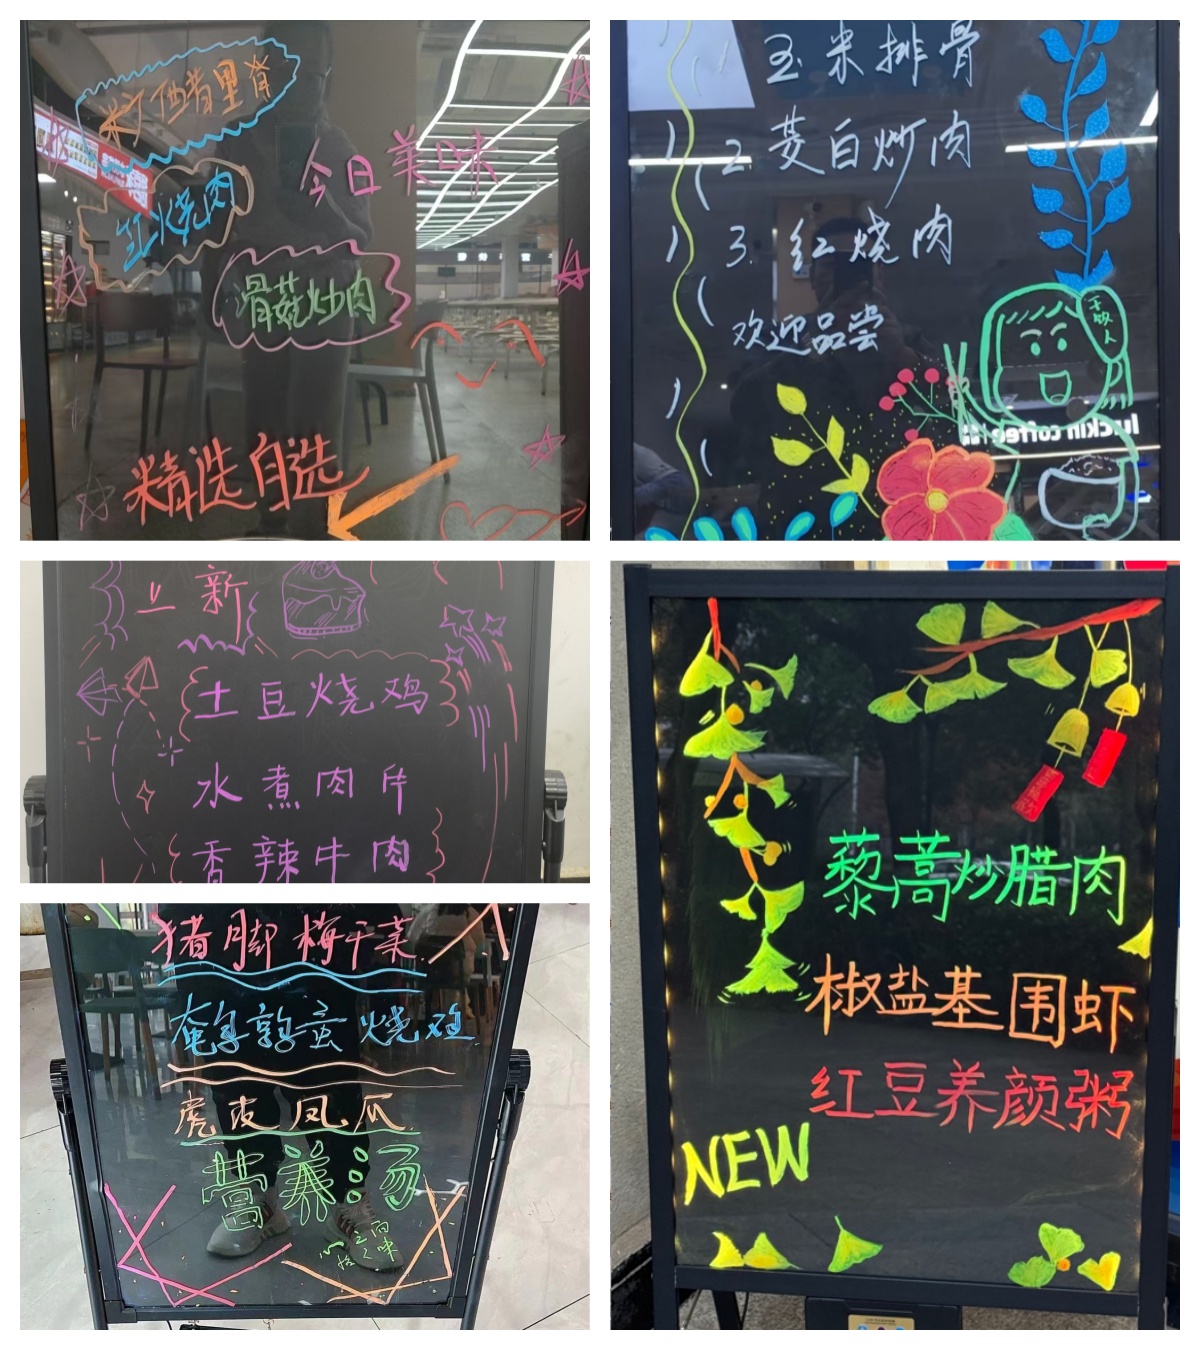 里脊
红烧肉
今日美味
骨菇炒肉
精选自选
玉米排骨
2. 茭白炒肉
3. 红烧肉
欢迎品尝
干饭人
luckin coffee
上新
土豆烧鸡
水煮肉片
香辣牛肉
猪脚梅干菜
鹌鹑蛋烧鸡
虎皮凤爪
营养汤
藜蒿炒腊肉
椒盐基围虾
红豆养颜粥
NEW